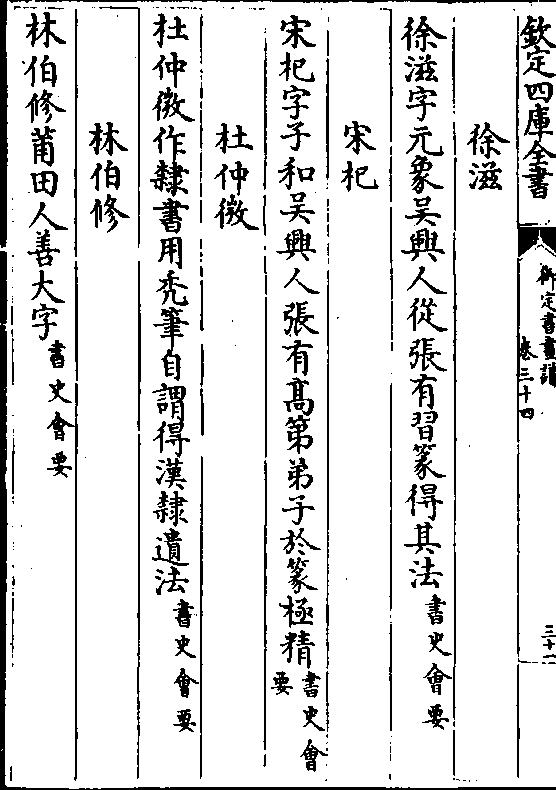 欽定四庫全書
御定書畫譜
卷三十四
三十一
徐滋
徐滋字元象吳興人從張有習篆得其法書史會要
宋杞
宋杞字子和吳興人張有高第弟子於篆極精書史會要
杜仲微
杜仲微作隸書用禿筆自謂得漢隸遺法書史會要
林伯修
林伯修莆田人善大字書史會要